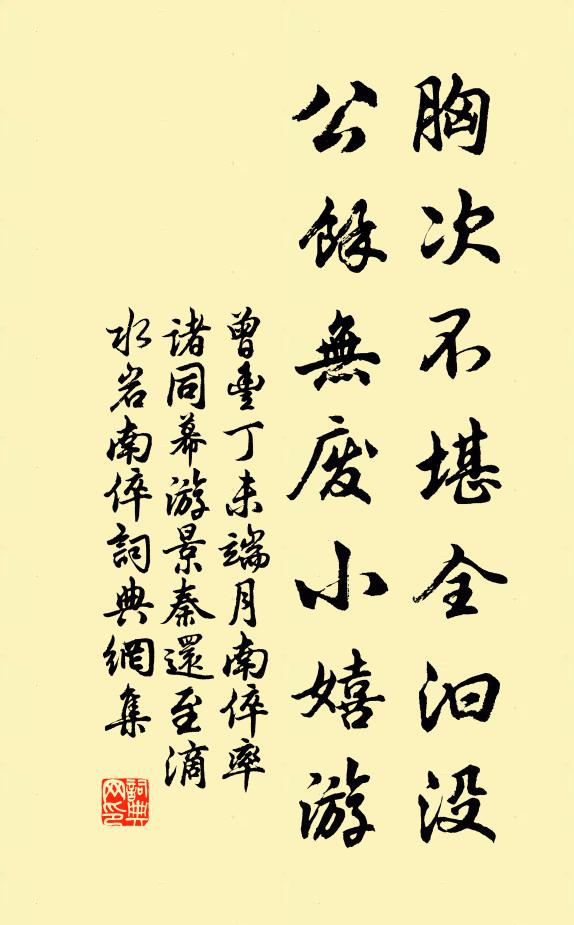 胸次不堪全汩没
公餘無废小嬉游
曾豊丁未端月南倅率
諸同幕游景秦還至滴
水岩南倅詞典網集
詞典网印